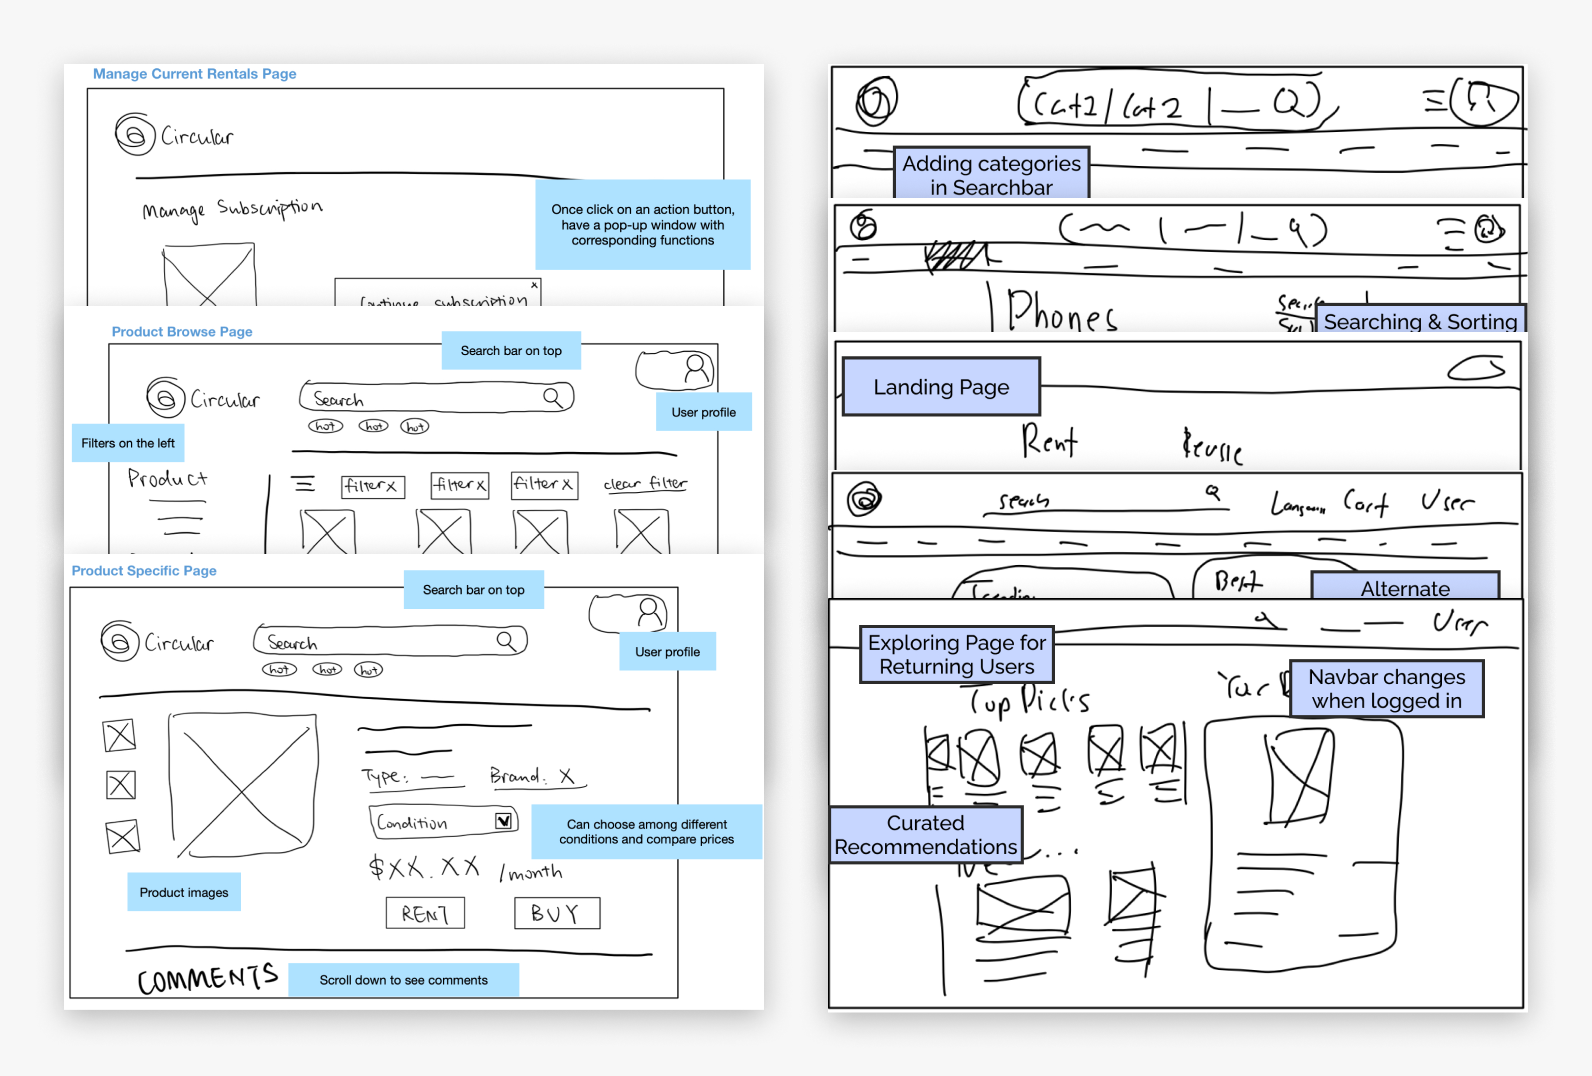 Manage Current Rentals Page
Circular
Manage Subscription
Once click on an action button,
have a pop-up window with
corresponding functions
x
Continue subscription
Product Browse Page
Search bar on top
Circular
Search
hot hot hot
User profile
Filters on the left
Product
filter x filter x filter x clear filter
Product Specific Page
Search bar on top
Circular
Search
hot hot hot
User profile
Type: Brand: X
Condition
Can choose among different
conditions and compare prices
$XX.XX /month
Product images
RENT BUY
COMMENTS
Scroll down to see comments
Cat1/Cat2 |
Adding categories
in Searchbar
Phones
Searching & Sorting
Landing Page
Rent Reuse
search Cart User
Best
Trending
Alternate
User
Exploring Page for
Returning Users
Navbar changes
when logged in
Top Picks
Your
Curated
Recommendations